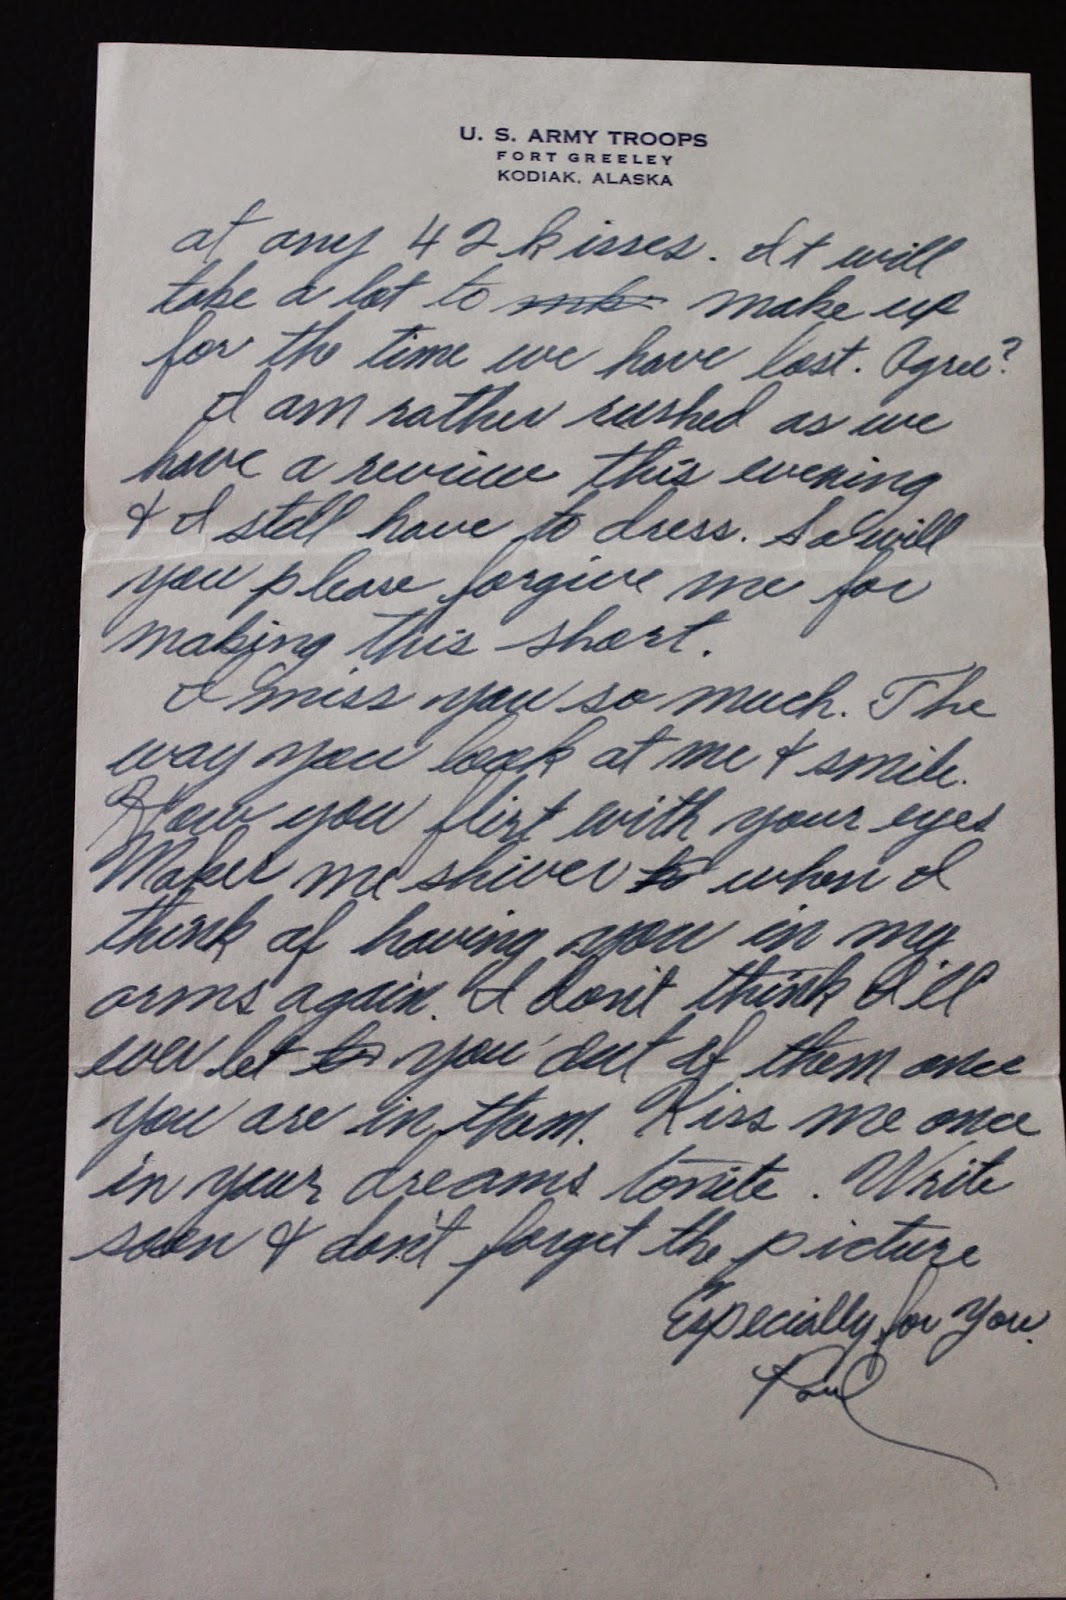 U. S. ARMY TROOPS
FORT GREELEY
KODIAK, ALASKA
at any 42 kisses. It will
take a lot to make up
for the time we have lost. Agree?
I am rather rushed as we
have a review this evening
& I still have to dress. So will
you please forgive me for
making this short.
I miss you so much. The
way you look at me & smile.
How you flirt with your eyes
Makes me shiver when I
think of having you in my
arms again. I don't think I'll
ever let you out of them once
you are in them. Kiss me once
in your dreams tonite. Write
soon & don't forget the picture
Especially for you.
Paul